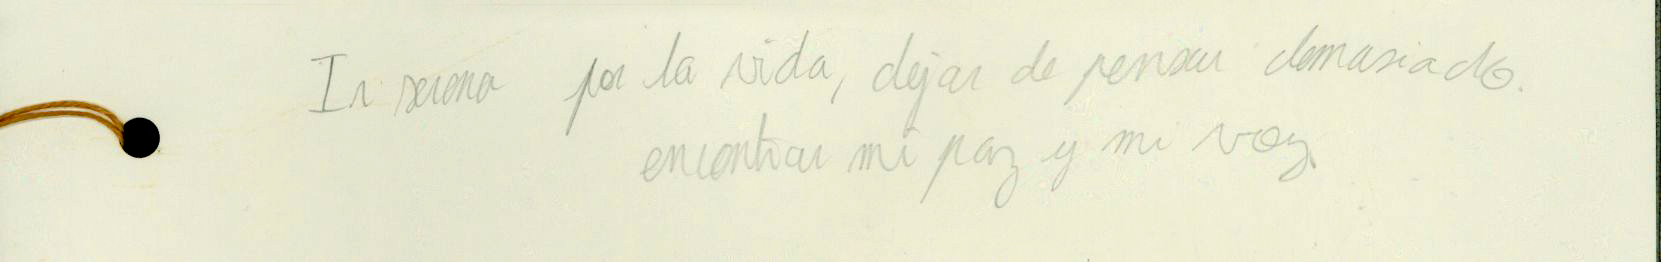 Ir serena por la vida, dejar de pensar demasiado.
encontrar mi paz y mi voz.